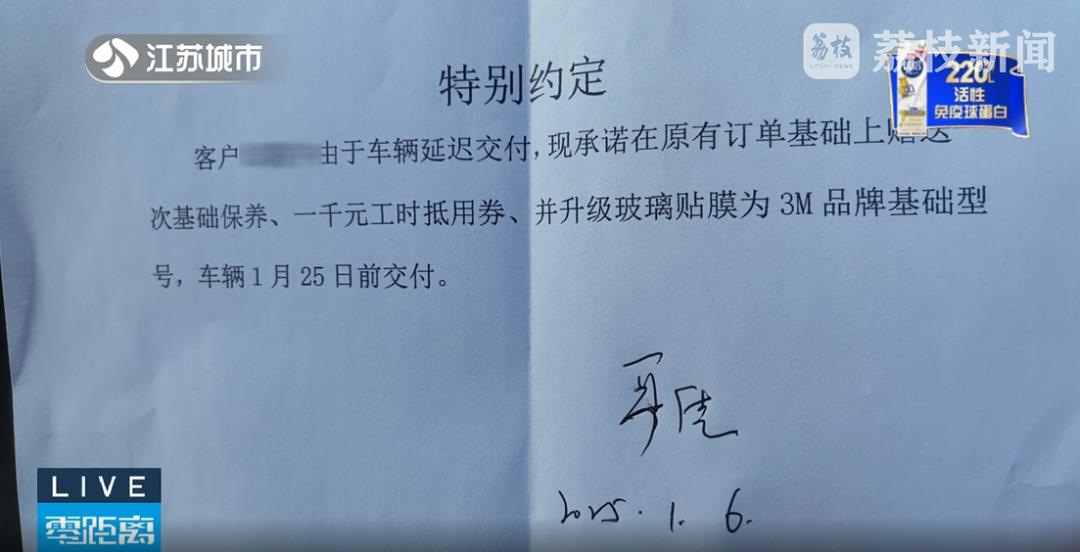 江苏城市
荔枝
LITCHI NEWS
荔枝新闻
220
活性
免疫球蛋白
特别约定
客户 由于车辆延迟交付,现承诺在原有订单基础上赠送
次基础保养、一千元工时抵用券、并升级玻璃贴膜为 3M 品牌基础型
号,车辆1月 25 日前交付。
2025.1.6.
LIVE
零距离